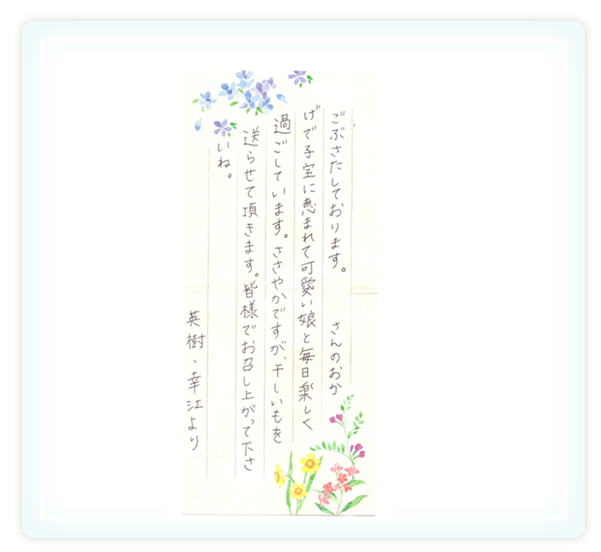 ごぶさたしております。 さんのおか
げで子宝に恵まれて可愛い娘と毎日楽しく
過ごしています。ささやかですが、干しいもを
送らせて頂きます。皆様でお召し上がって下さ
いね。
英樹・幸江より